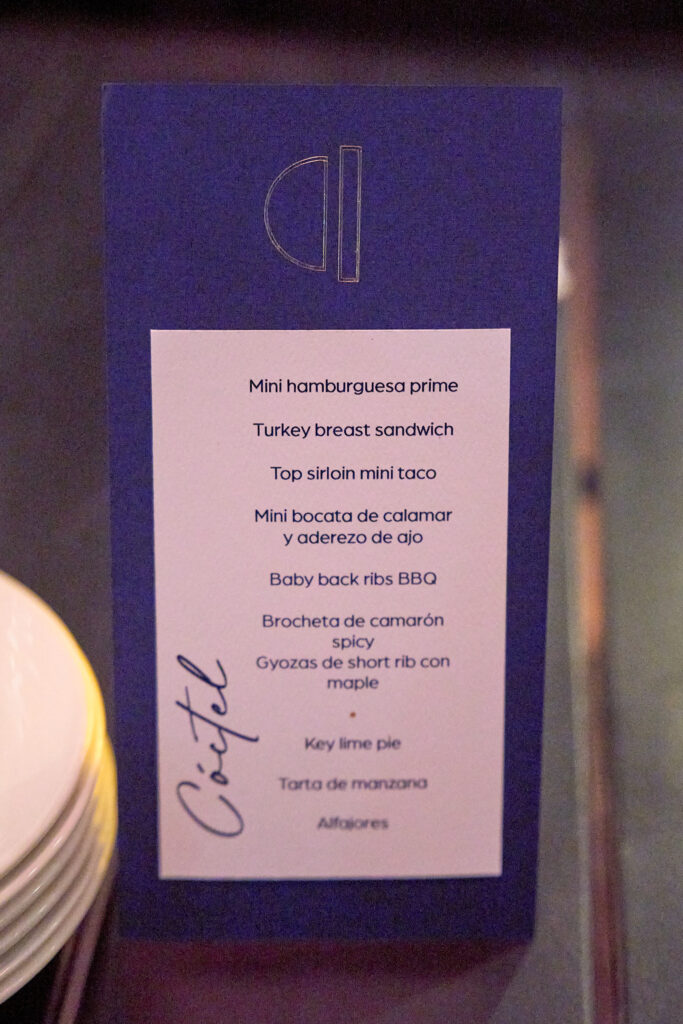 Mini hamburguesa prime
Turkey breast sandwich
Top sirloin mini taco
Mini bocata de calamar
y aderezo de ajo
Baby back ribs BBQ
Brocheta de camarón
spicy
Gyozas de short rib con
maple
Key lime pie
Tarta de manzana
Alfajores
Cóctel